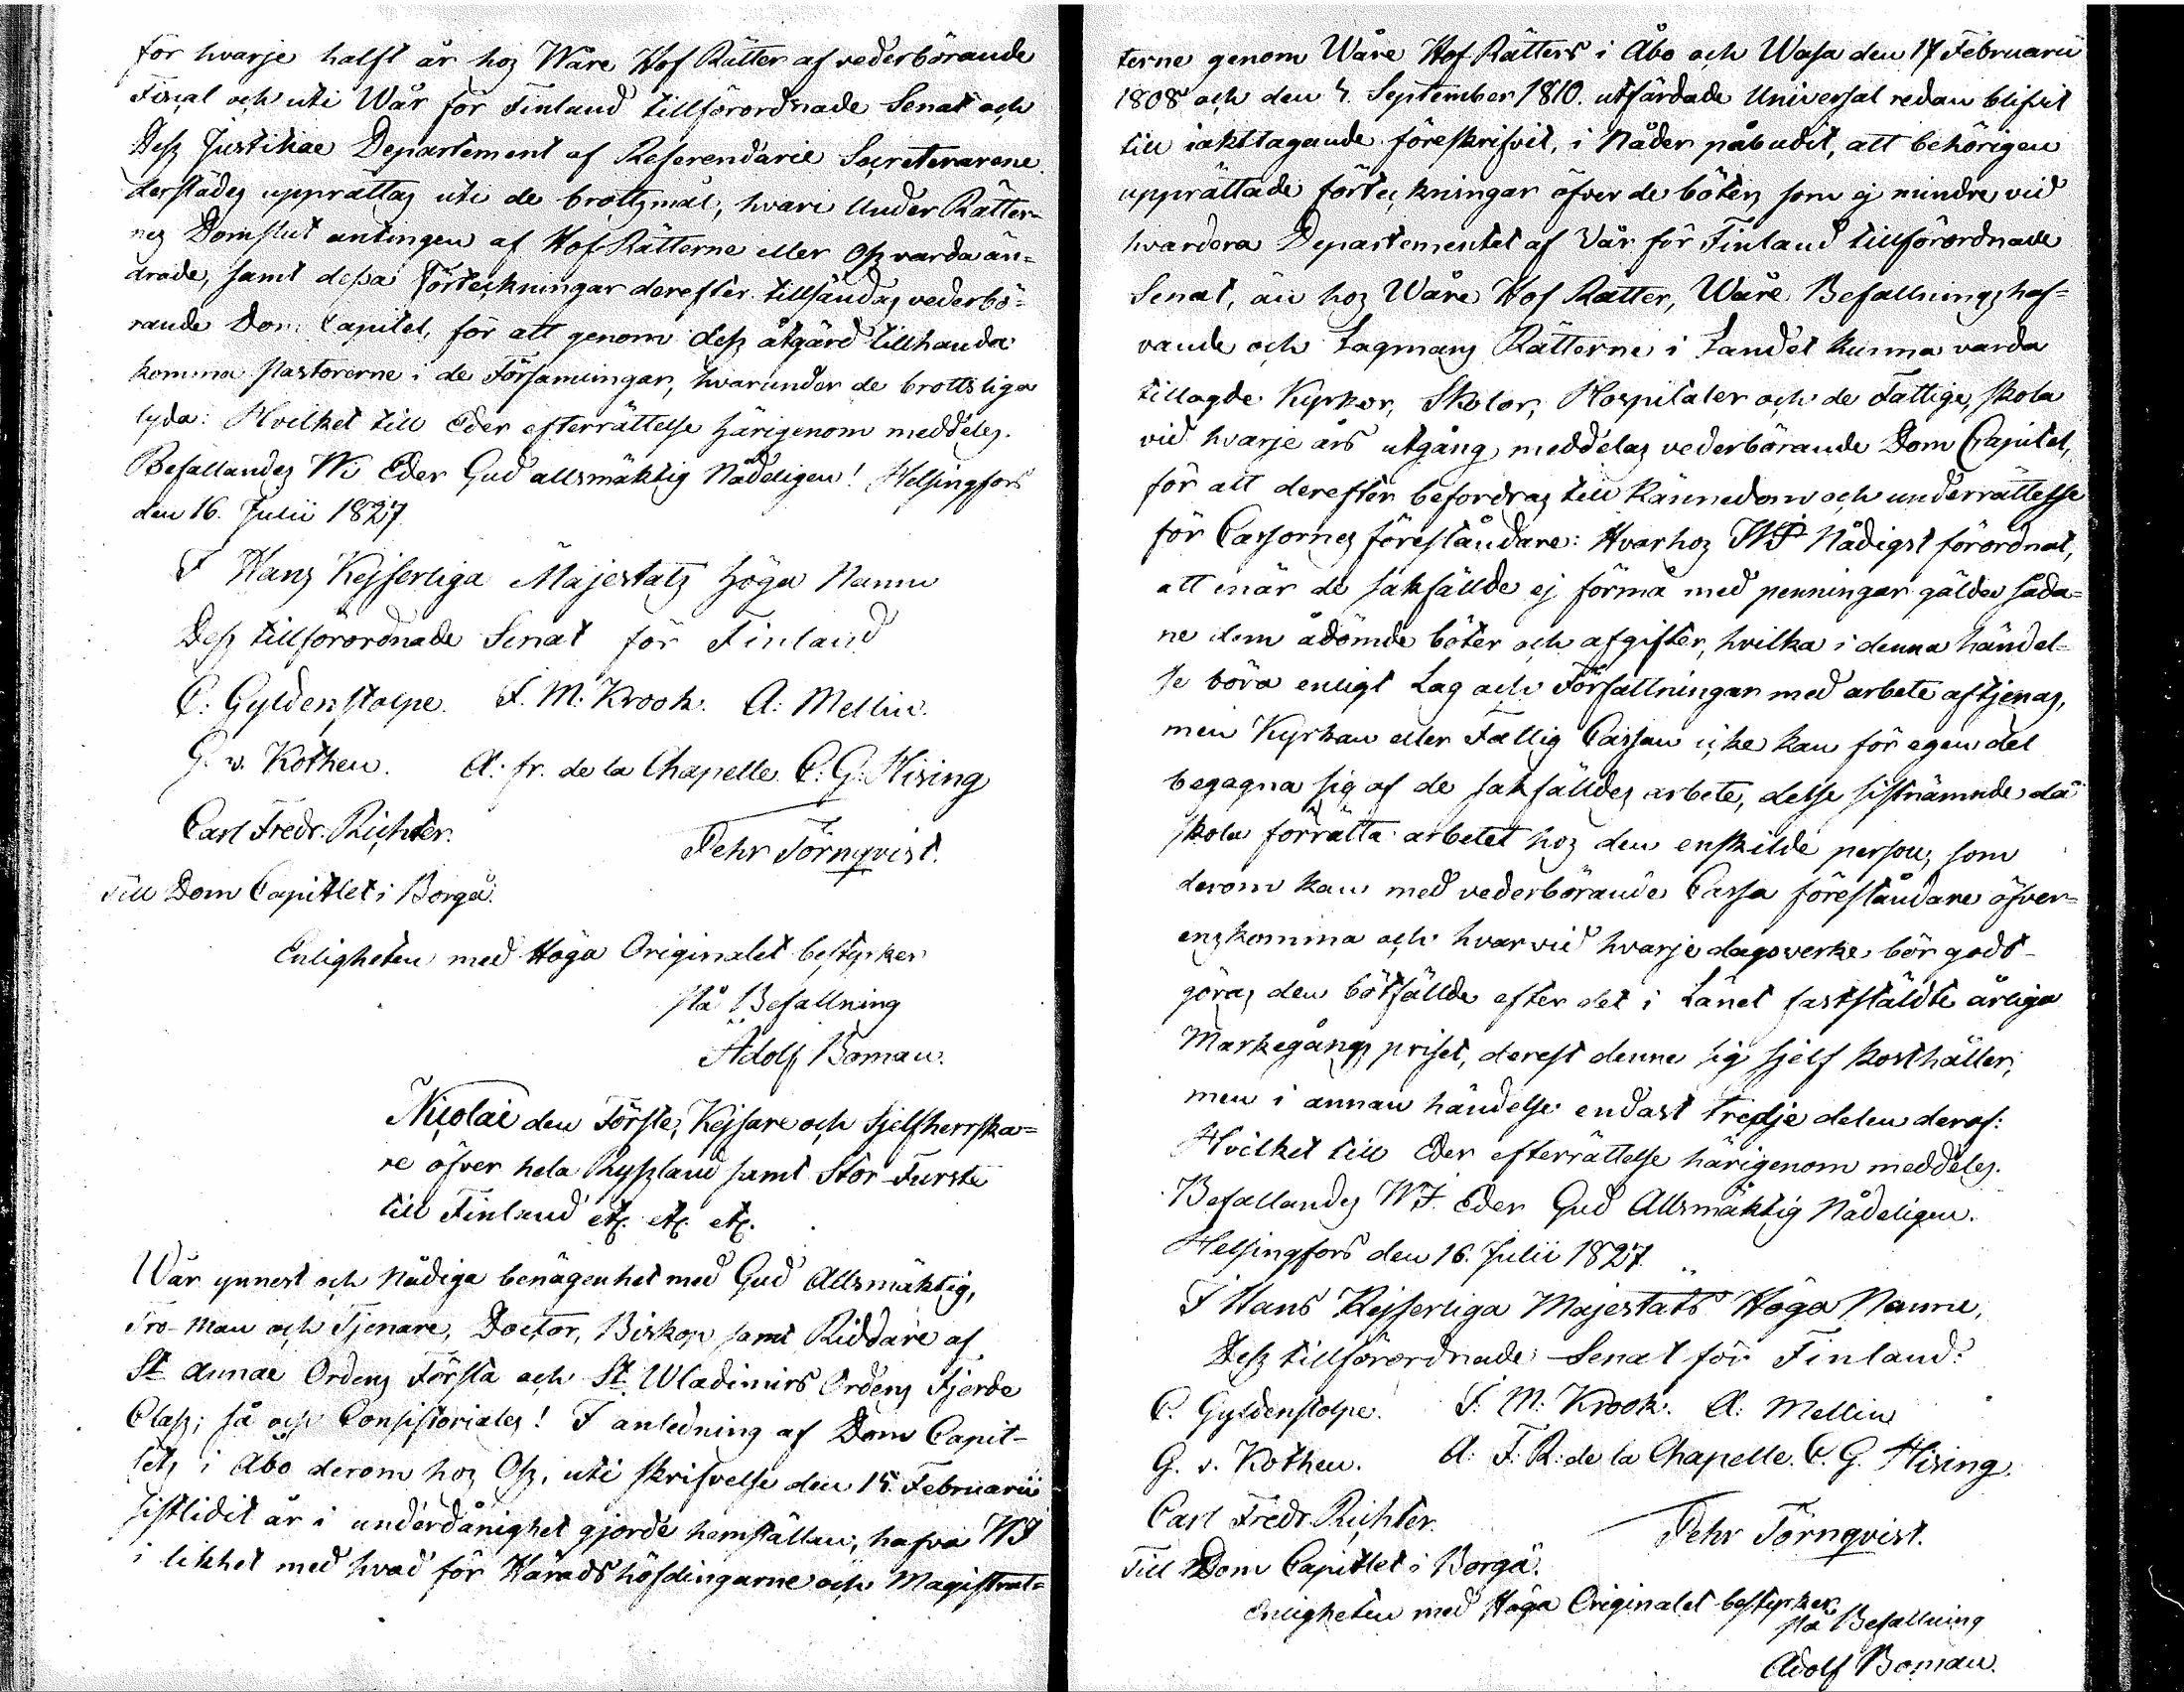 för hvarje halft år hos Wåre Hof Rätter af vederbörande
Fiscal och uti Wår för Finland tillförordnade Senat och
Dess Justitiae Departement af Referendarie Secreterarene
derstädes upprättas uti de brottsmål, hvari Under Rätter-
nes Domslut antingen af Hof Rätterne eller Oss varda än-
drade, samt dessa Förteckningar derefter tillsändas vederbö-
rande Dom Capitel, för att genom dess åtgärd tillhanda
komma Pastorerne i de Församlingar, hvarunder de brottsliga
lyda: Hvilket till Eder efterrättelse härigenom meddeles.
Befallandes Wi Eder Gud allsmäktig Nådeligen! Helsingfors
den 16. Julii 1827.
I Hans Kejserliga Majestäts höga Namn
Dess tillförordnade Senat för Finland
C. Gyldenstolpe. F. M. Krook. A. Mellin.
G. v. Kothen. A. fr. de la Chapelle. C. G. Hising
Carl Fredr. Richter.
Pehr Törnqvist.
Till Dom Capitlet i Borgå.
Enligheten med Höga Originalet bestyrker
På Befallning
Adolf Boman.
Nicolai den Förste, Kejsare och Sjelfherrska-
re öfver hela Ryssland samt Stor-Furste
till Finland etc. etc. etc.
Wår ynnest och Nådiga benägenhet med Gud Allsmäktig,
Tro-Man och Tjenare, Doctor, Biskop samt Riddare af
St Annae Ordens Första och St. Wladimirs Ordens Fjerde
Class; så och Consistoriales! I anledning af Dom Capit-
lets i Åbo derom hos Oss, uti skrifvelse den 15. Februarii
sistlidit år i underdånighet gjorde hemställan, hafva WJ
i likhet med hvad för Häradshöfdingarne och Magistrat-
terne genom Wåre Hof Rätters i Åbo och Wasa den 17 Februarii
1808 och den 4. September 1810. utfärdade Universal redan blifvit
till iakttagande föreskrifvit, i Nåder påbudit, att behörigen
upprättade förteckningar öfver de böter, som ej mindre vid
hvardera Departementet af Vår för Finland tillförordnade
Senat, än hos Wåre Hof Rätter, Wåre Befallningshaf-
vande och Lagmans Rätterne i Landet kunna varda
tillagde Kyrkor, Skolor, Hospitaler och de Fattige, skola
vid hvarje års utgång meddelas vederbörande Dom Capitel,
för att derefter befordras till kännedom och underrättelse
för Cassornes föreståndare: Hvarhos WJ Nådigst förordnat,
att enär de sakfällde ej förmå med penningar gälda såda-
ne dem ådömde böter och afgifter, hvilka i denna händel-
se böra enligt Lag och Författningar med arbete aftjenas,
men Kyrkan eller Fattig Cassan icke kan för egen del
begagna sig af de sakfälldes arbete, desse sistnämnde då
skola förrätta arbetet hos den enskilde person, som
derom kan med vederbörande Cassa föreståndare öfver-
enskomma och hvarvid hvarje dagsverke bör godt-
göras den bötfällde efter det i Länet fastställdte årliga
Markegångs priset, derest denne sig sjelf kosthåller,
men i annan händelse endast tredje delen deraf:
Hvilket till Eder efterrättelse härigenom meddeles.
Befallandes WJ. Eder Gud Allsmäktig Nådeligen.
Helsingfors den 16. Julii 1827.
I Hans Kejserliga Majestäts Höga Namn,
Dess tillförordnade Senat för Finland:
C. Gyldenstolpe. F. M. Krook. A. Mellin
G. v. Kothen. A. F. R. de la Chapelle. C. G. Hising.
Carl Fredr. Richter.
Pehr Törnqvist.
Till Dom Capitlet i Borgå.
Enligheten med Höga Originalet bestyrker
På Befallning
Adolf Boman.